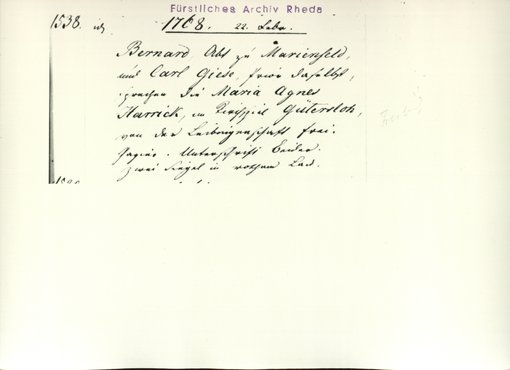 Fürstliches Archiv Rheda
1538. 1768. 22. Febr.
Bernard Abt zu Marienfeld,
und Carl Giese, Prior daselbst,
sprechen die Maria Agnes
Harrick, im Kirchspiel Gütersloh,
von der Leibeigenschaft frei.
Papier. Unterschrift Beider.
zwei Siegel in rothem Lack.